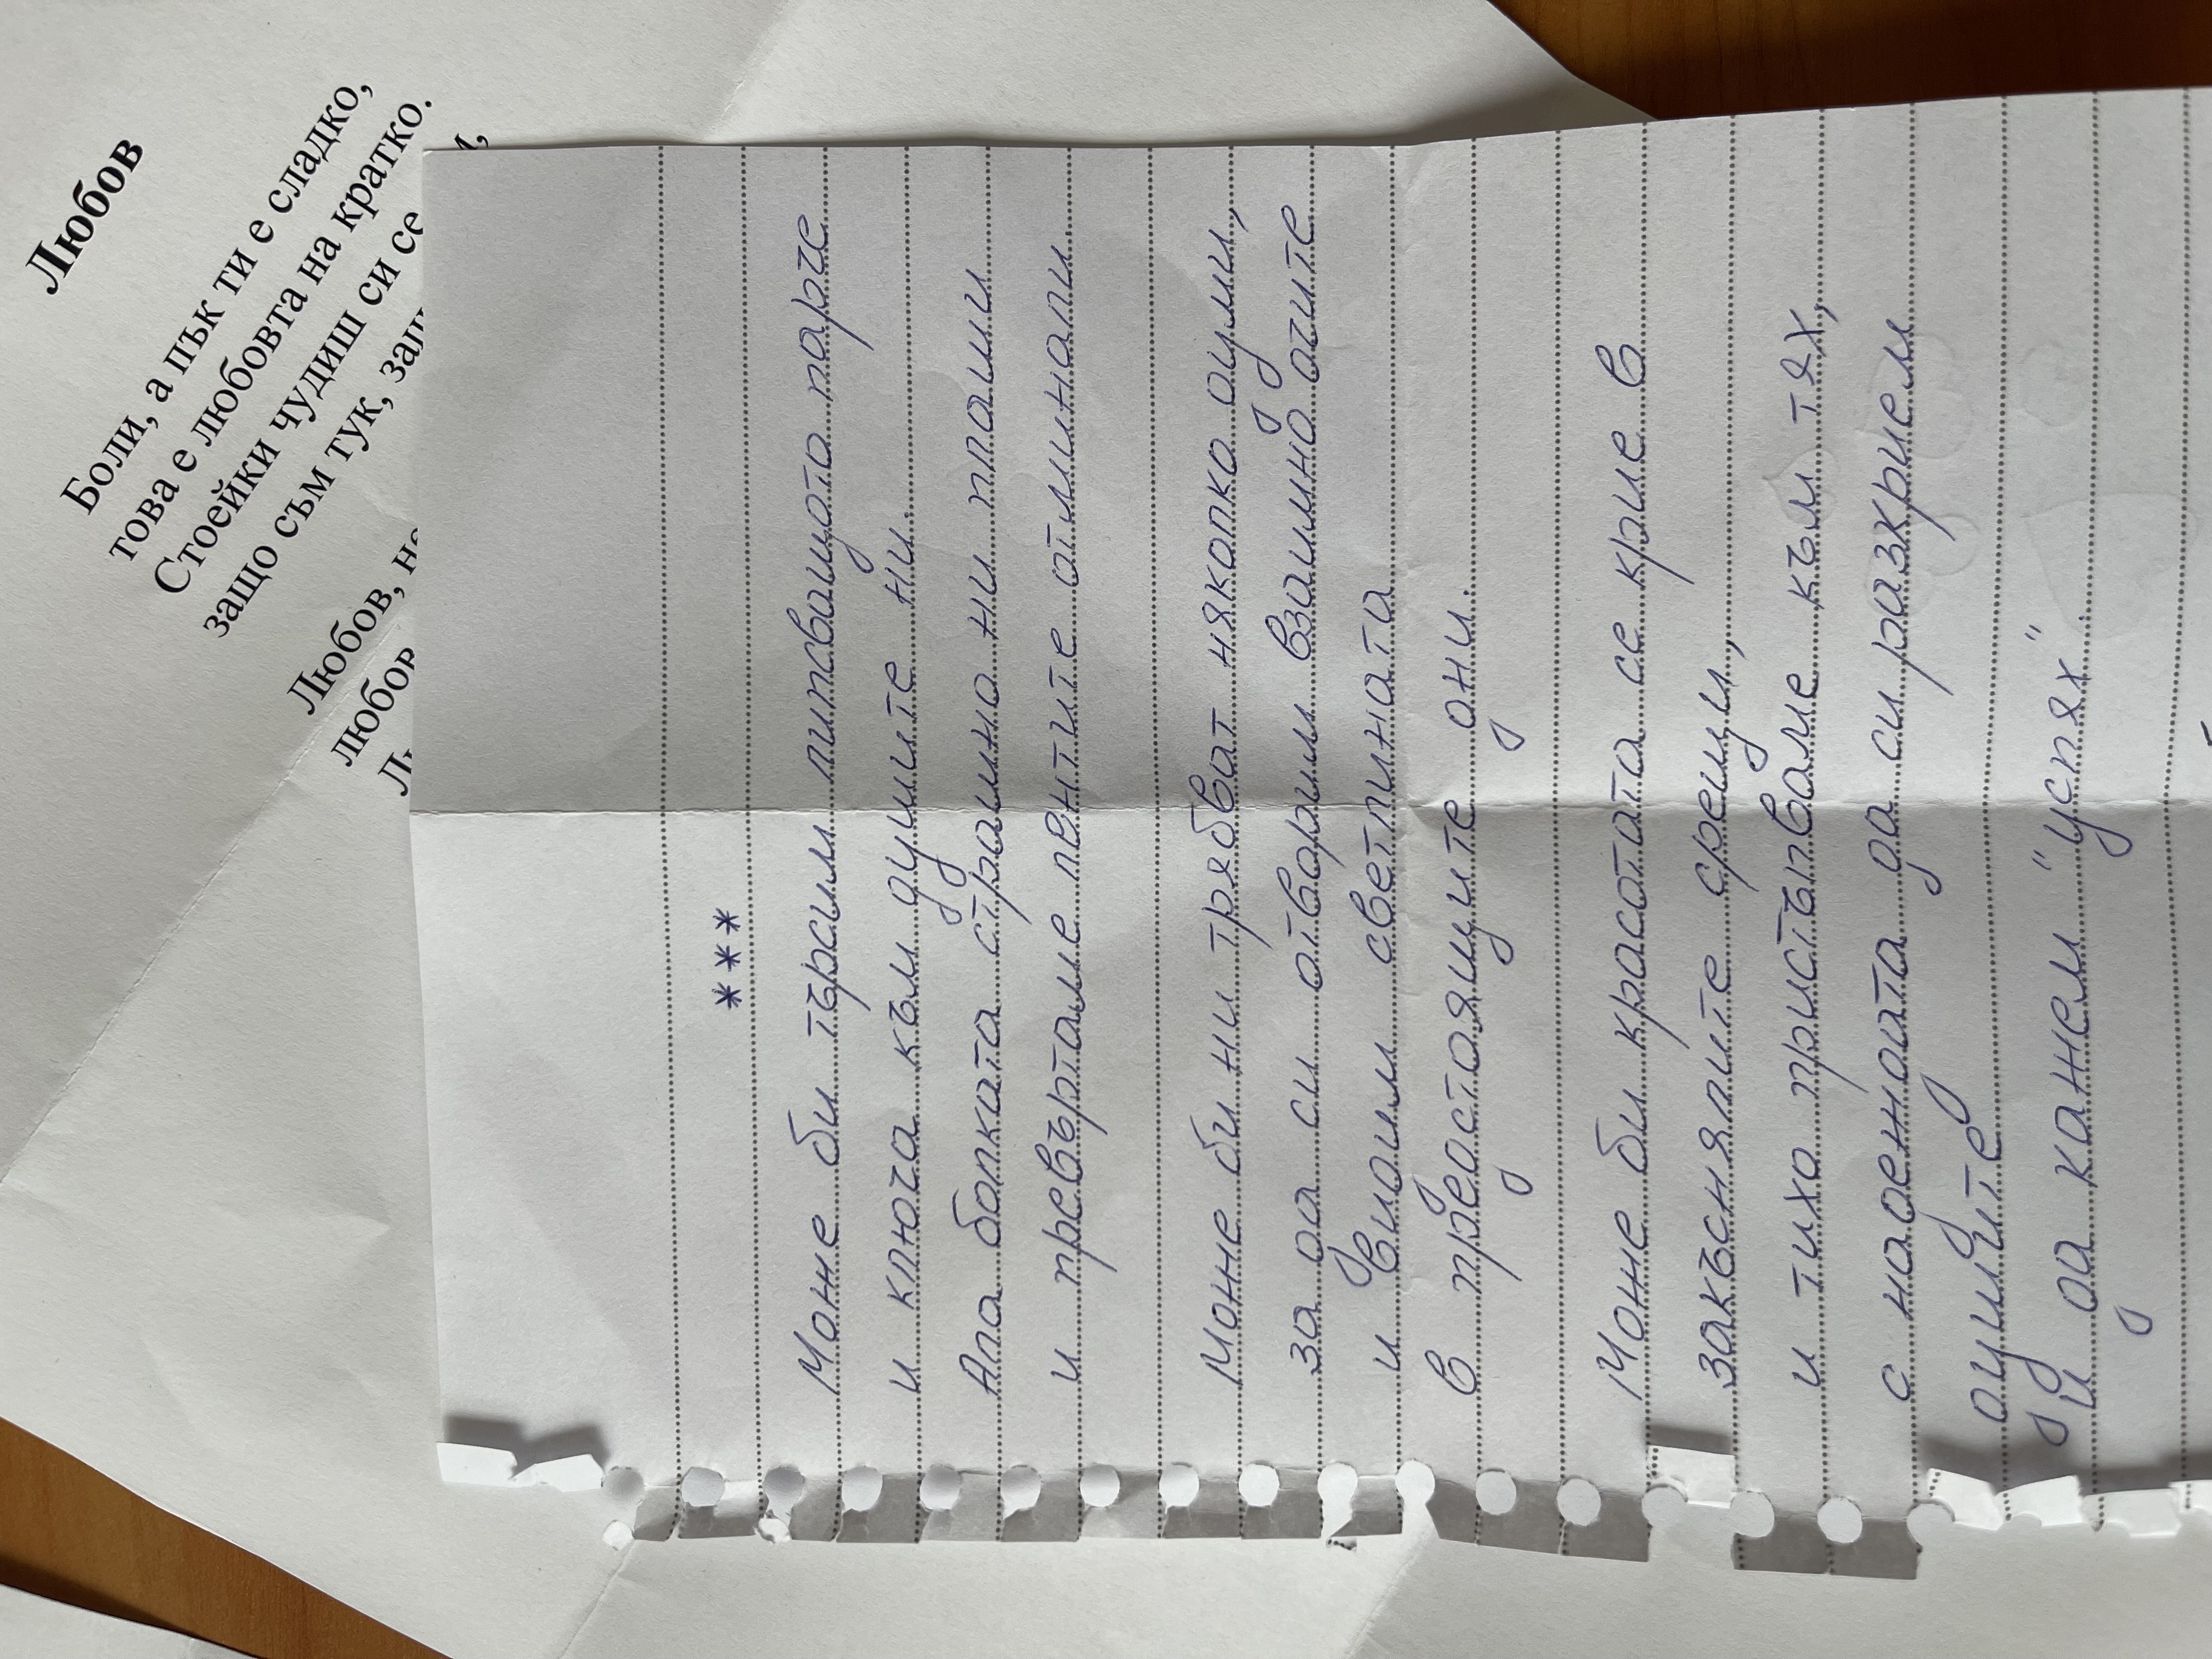 Любов
Боли, а пък ти е сладко,
това е любовта на кратко.
Стоейки чудиш си се
защо съм тук,
Любов,
***
Може би търсим липсващото парче
и ключа към душите ни.
Ала болката страшно ни плаши
и превъртаме лентите отминали.
Може би ни трябват няколко думи,
за да си отворим взаимно очите
и видим светлината
в предстоящите дни.
Може би красотата се крие в
закъснялите срещи,
и тихо пристъпваме към тях,
с надеждата да си разкрием
душите
и да кажем "успях".